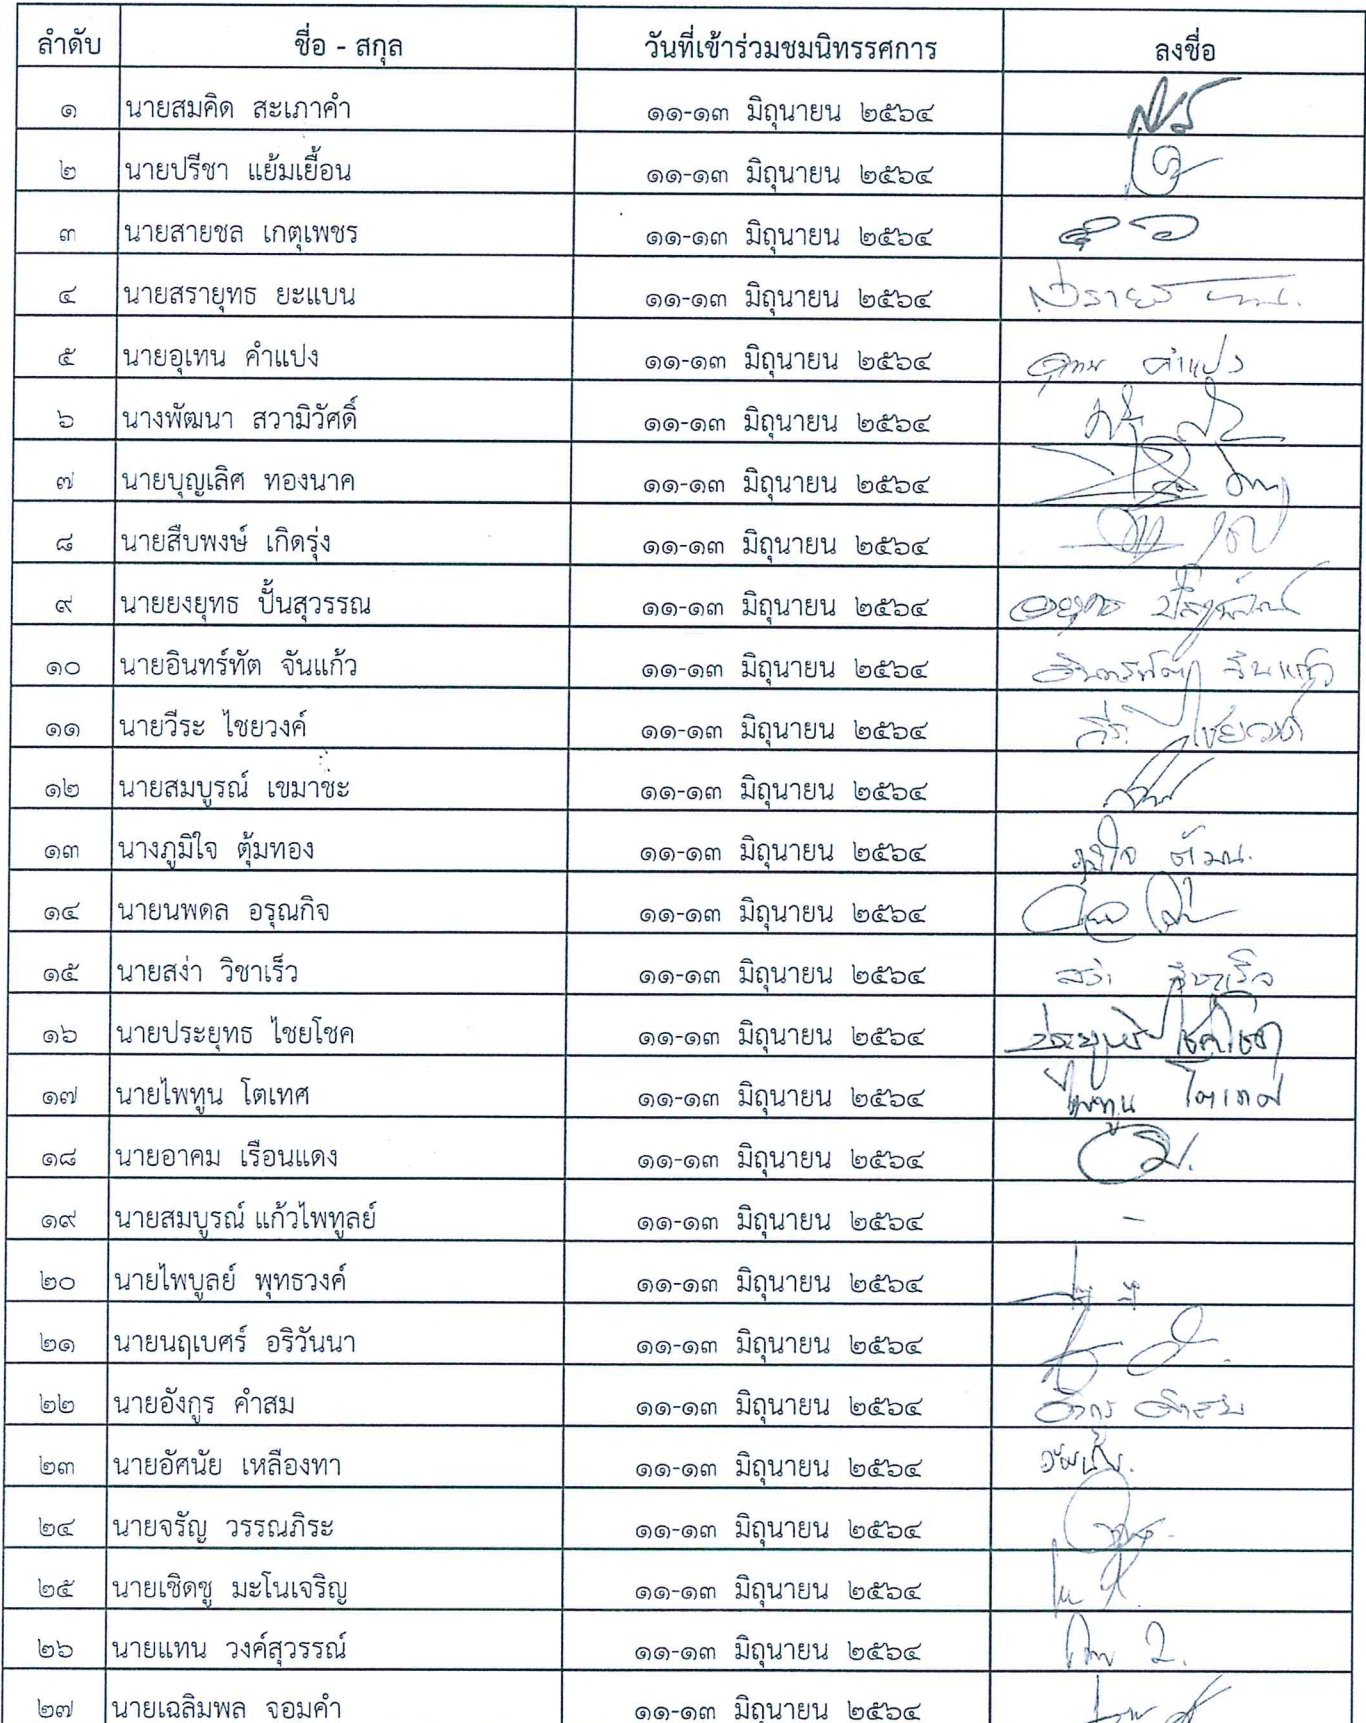 ลำดับ ชื่อ - สกุล วันที่เข้าร่วมชมนิทรรศการ ลงชื่อ
๑ นายสมคิด สะเภาคำ ๑๑-๑๓ มิถุนายน ๒๕๖๔
๒ นายปรีชา แย้มเยื้อน ๑๑-๑๓ มิถุนายน ๒๕๖๔
๓ นายสายชล เกตุเพชร ๑๑-๑๓ มิถุนายน ๒๕๖๔
๔ นายสรายุทธ ยะแบน ๑๑-๑๓ มิถุนายน ๒๕๖๔
๕ นายอุเทน คำแปง ๑๑-๑๓ มิถุนายน ๒๕๖๔ อุเทน คำแปง
๖ นางพัฒนา สวามิวัศดิ์ ๑๑-๑๓ มิถุนายน ๒๕๖๔
๗ นายบุญเลิศ ทองนาค ๑๑-๑๓ มิถุนายน ๒๕๖๔
๘ นายสืบพงษ์ เกิดรุ่ง ๑๑-๑๓ มิถุนายน ๒๕๖๔
๙ นายยงยุทธ ปั้นสุวรรณ ๑๑-๑๓ มิถุนายน ๒๕๖๔
๑๐ นายอินทร์ทัต จันแก้ว ๑๑-๑๓ มิถุนายน ๒๕๖๔
๑๑ นายวีระ ไชยวงค์ ๑๑-๑๓ มิถุนายน ๒๕๖๔ วีระ ไชยวงค์
๑๒ นายสมบูรณ์ เขมาชะ ๑๑-๑๓ มิถุนายน ๒๕๖๔
๑๓ นางภูมิใจ ตุ้มทอง ๑๑-๑๓ มิถุนายน ๒๕๖๔
๑๔ นายนพดล อรุณกิจ ๑๑-๑๓ มิถุนายน ๒๕๖๔
๑๕ นายสง่า วิชาเร็ว ๑๑-๑๓ มิถุนายน ๒๕๖๔ สง่า วิชาเร็ว
๑๖ นายประยุทธ ไชยโชค ๑๑-๑๓ มิถุนายน ๒๕๖๔
๑๗ นายไพทูน โตเทศ ๑๑-๑๓ มิถุนายน ๒๕๖๔ ไพทูน โตเทศ
๑๘ นายอาคม เรือนแดง ๑๑-๑๓ มิถุนายน ๒๕๖๔
๑๙ นายสมบูรณ์ แก้วไพทูลย์ ๑๑-๑๓ มิถุนายน ๒๕๖๔ -
๒๐ นายไพบูลย์ พุทธวงค์ ๑๑-๑๓ มิถุนายน ๒๕๖๔
๒๑ นายนฤเบศร์ อริวันนา ๑๑-๑๓ มิถุนายน ๒๕๖๔
๒๒ นายอังกูร คำสม ๑๑-๑๓ มิถุนายน ๒๕๖๔ อังกูร คำสม
๒๓ นายอัศนัย เหลืองทา ๑๑-๑๓ มิถุนายน ๒๕๖๔
๒๔ นายจรัญ วรรณภิระ ๑๑-๑๓ มิถุนายน ๒๕๖๔
๒๕ นายเชิดชู มะโนเจริญ ๑๑-๑๓ มิถุนายน ๒๕๖๔
๒๖ นายแทน วงค์สุวรรณ์ ๑๑-๑๓ มิถุนายน ๒๕๖๔
๒๗ นายเฉลิมพล จอมคำ ๑๑-๑๓ มิถุนายน ๒๕๖๔